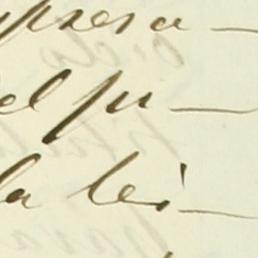 presa—
el pu—
la lei—